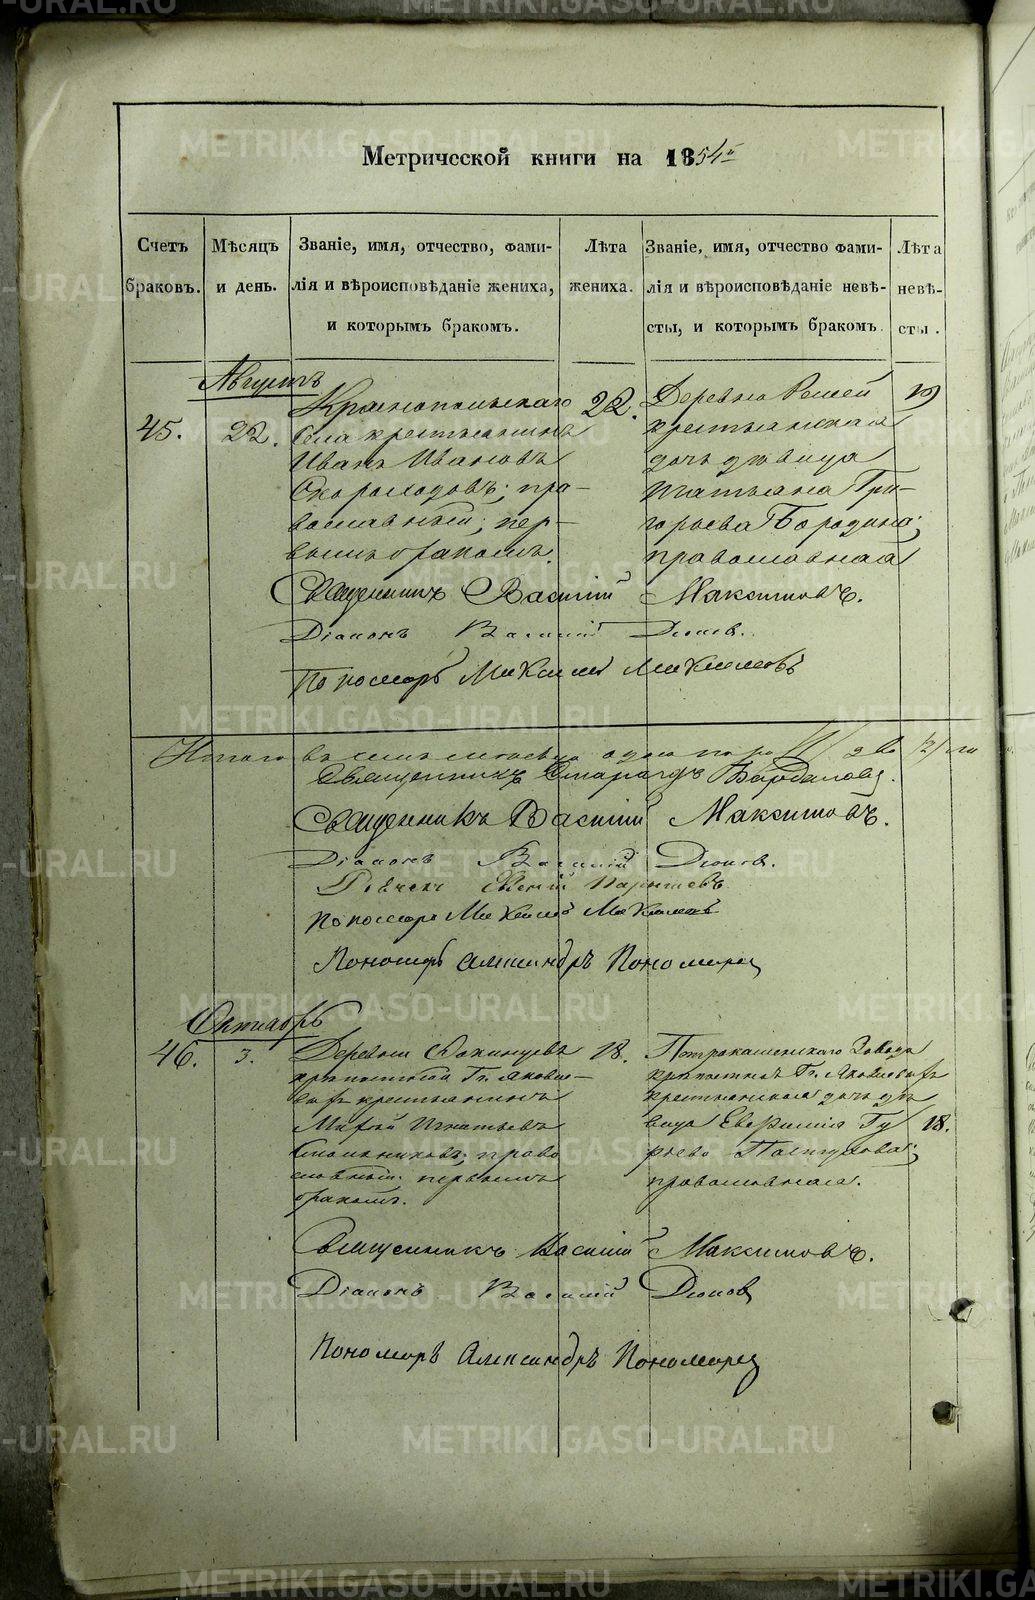 METRIKI.GASO-URAL.RU
Метрической книги на 1854
Счетъ браковъ.
Мѣсяцъ и день.
Званіе, имя, отчество, фами-
лія и вѣроисповѣданіе жениха,
и которымъ бракомъ.
Лѣта жениха.
Званіе, имя, отчество фами-
лія и вѣроисповѣданіе невѣ-
сты, и которымъ бракомъ.
Лѣта невѣ-
сты.
Августъ
45.
22.
Краснопольскаго
села крестьянинъ
Иванъ Ивановъ
Скороходовъ; пра-
вославный; пер-
вымъ бракомъ.
22.
Деревни Решей
крестьянская
дочь дѣвица
Татьяна Гри-
горьева Бородина;
православная
19
Священникъ Василій Максимовъ.
Діаконъ Василій
Пономарь Максимъ
Итого въ семъ мѣсяцѣ одна два /2/
Священникъ
Священникъ Василій Максимовъ.
Діаконъ Василій
Евгеній
Пономарь Александръ Пономарец
Октябрь
46.
3.
Деревни
крѣпостный Гг. Яковле-
выхъ крестьянинъ
Игнатьевъ
право
славный; первымъ
бракомъ.
18.
Петрокаменскаго Завода
крѣпостныхъ Гг. Яковлевыхъ
крестьянская дочь дѣ
вица Евфимія Гу
рьева
православная.
18.
Священникъ Василій Максимовъ.
Діаконъ Василій
Пономарь Александръ Пономарец